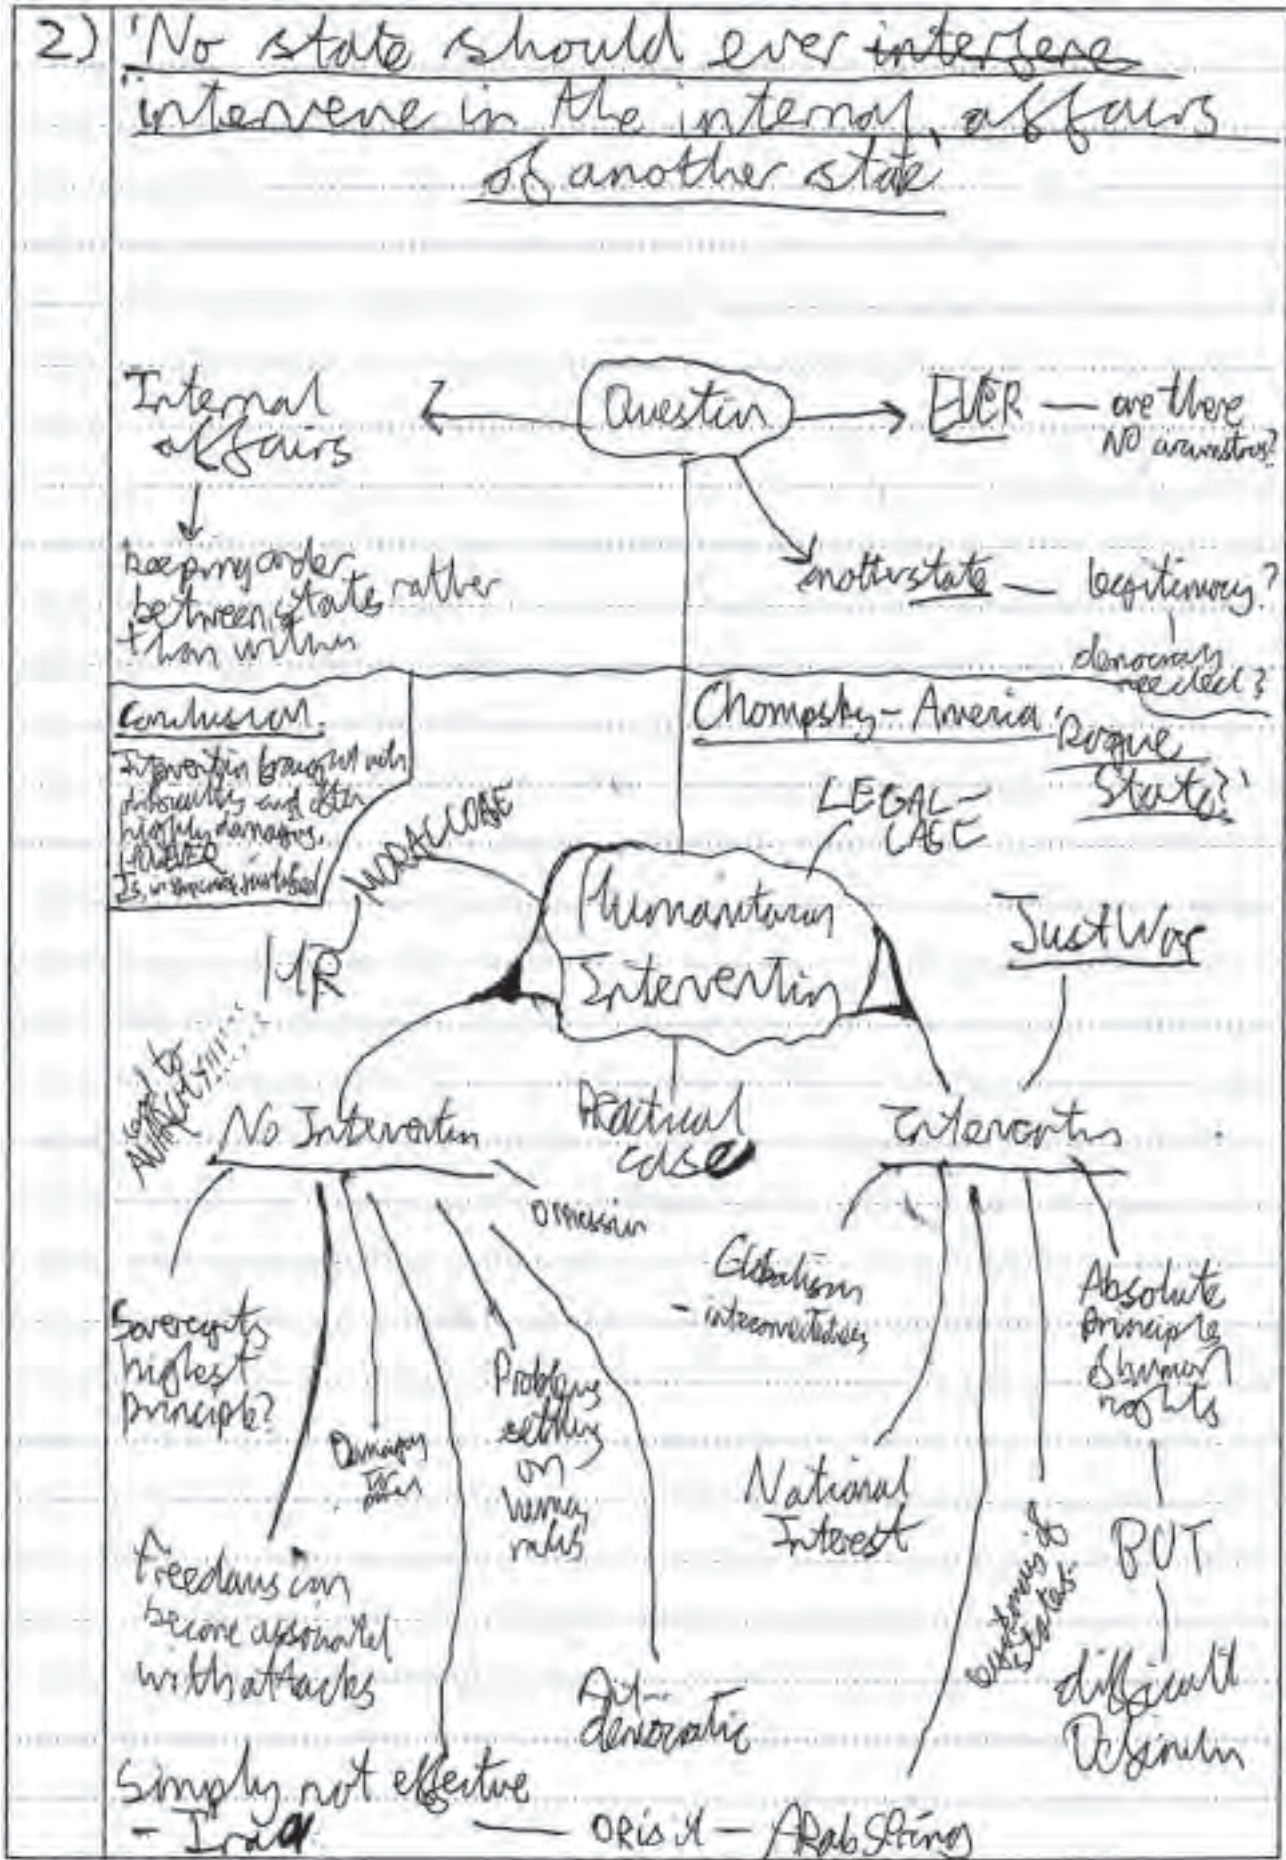 2) 'No state should ever interfere
intervene in the internal affairs
of another state'
Internal
affairs
?
Question
EVER — are there
NO
keeping order
between states rather
than within
another state — legitimacy?
democracy
needed?
Conclusion.
Intervention fraught with
difficulties and often
highly damaging,
HOWEVER
Is, in justified
Chompsky - America
'Rogue
State?'
LEGAL
CASE
MORAL CASE
HR
Humanitarian
Intervention
Just War
to
No Intervention
Practical
case
Intervention
omission
Globalism
- interconnectedness
Absolute
principle
of human
rights
Sovereignty
highest
principle?
Damaging
to
Problems
settling
on
human
rights
National
Interest
BUT
difficult
Definition
freedoms can
become associated
with attacks
of
states
democratic
Simply not effective
- Iraq — OR is it — Arab Spring